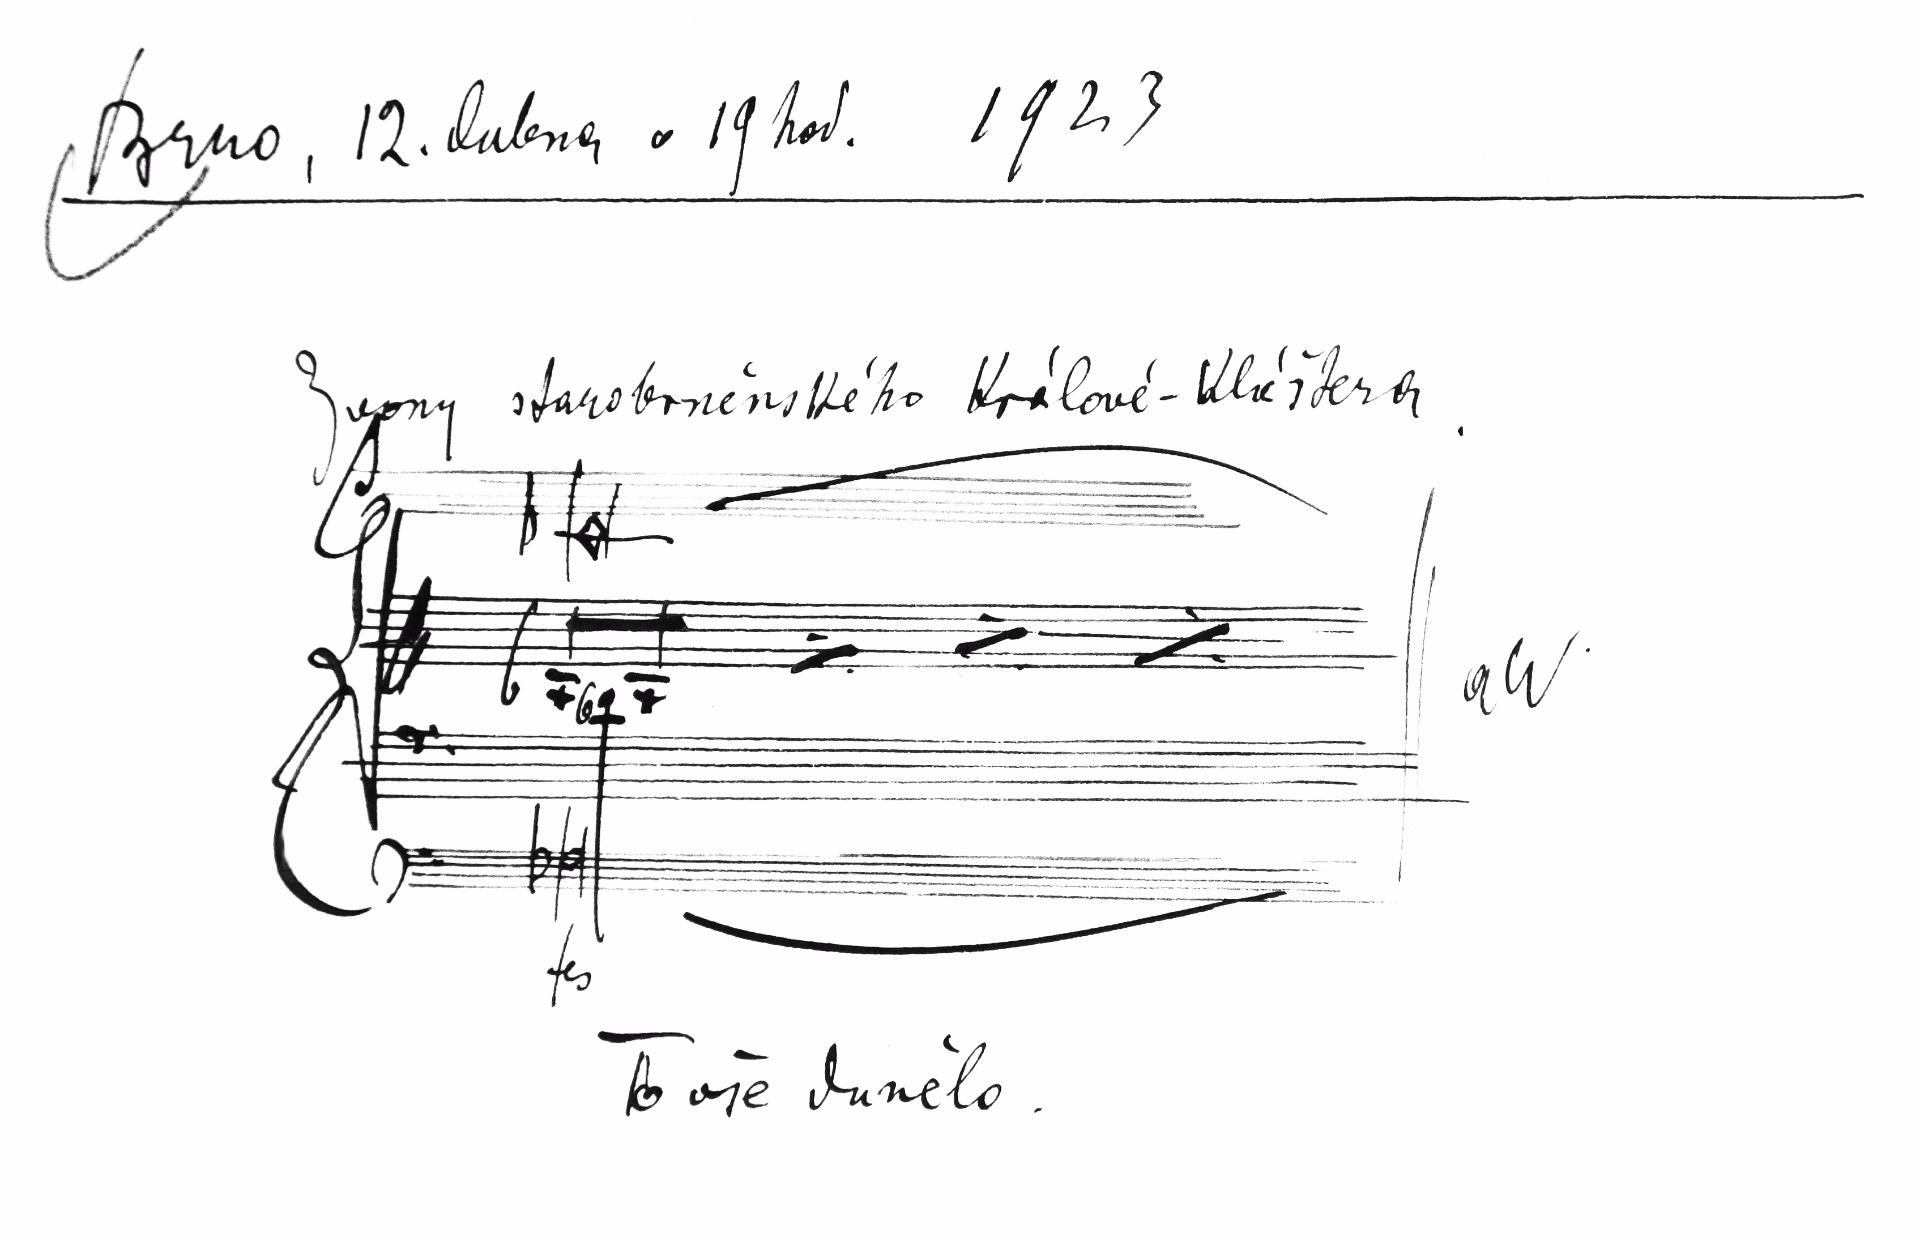 Brno, 12. dubna o 19 hod. 1923
Zvony starobrněnského Králové-Kláštera.
fes
To vše dunělo.